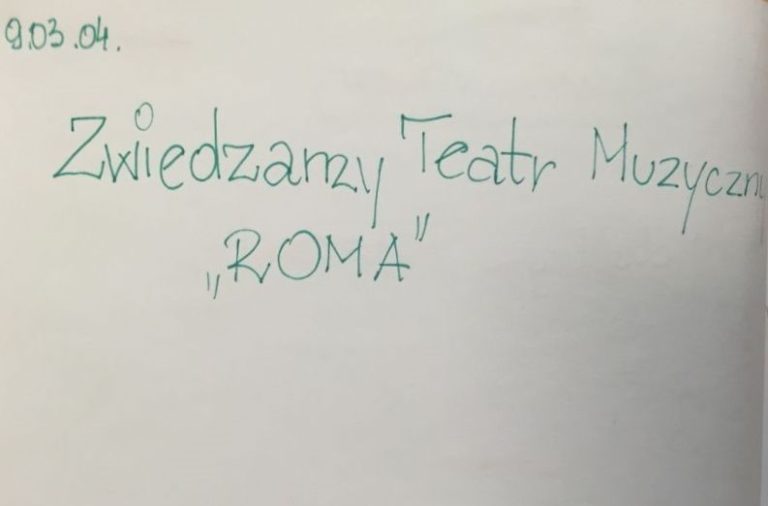 9.03.04.
Zwiedzamy Teatr Muzyczny
„ROMA”